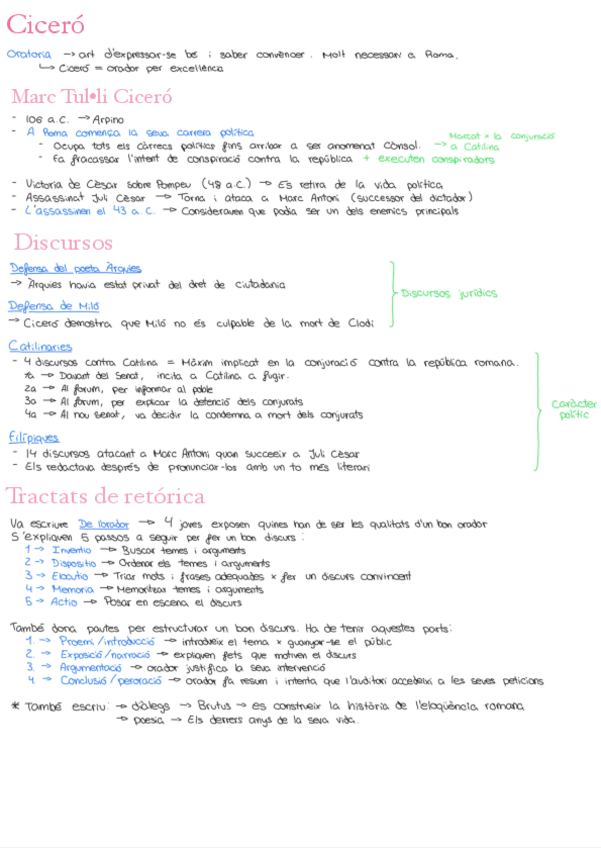 Ciceró
Oratoria → art d'expressar-se bé i saber convèncer. Molt necessari a Roma.
↳ Ciceró = orador per excel·lència
Marc Tul•li Ciceró
- 106 a.C. → Arpino
- A Roma comença la seva carrera política
- Ocupa tots els càrrecs polítics fins arribar a ser anomenat cònsol. → Marcat x la conjuració a Catilina
- Fa fracassar l'intent de conspiració contra la república + executen conspiradors
- Victoria de Cèsar sobre Pompeu (48 a.C.) → Es retira de la vida política
- Assassinat Juli Cèsar → Torna i ataca a Marc Antoni (successor del dictador)
- L'assassinen el 43 a.C. → Consideraven que podia ser un dels enemics principals
Discursos
Defensa del poeta Àrquies
→ Àrquies havia estat privat del dret de ciutadania
Discursos jurídics
Defensa de Miló
→ Ciceró demostra que Miló no és culpable de la mort de Clodi
Catilinaries
- 4 discursos contra Catilina = Màxim implicat en la conjuració contra la república romana.
1a → Davant del Senat, incita a Catilina a fugir.
2a → Al fòrum, per informar al poble
3a → Al fòrum, per explicar la detenció dels conjurats
4a → Al nou senat, va decidir la condemna a mort dels conjurats
Caràcter polític
Filípiques
- 14 discursos atacant a Marc Antoni quan succeeix a Juli Cèsar
- Els redactava després de pronunciar-los amb un to més literari
Tractats de retórica
Va escriure De l'orador → 4 joves exposen quines han de ser les qualitats d'un bon orador
S'expliquen 5 passos a seguir per fer un bon discurs:
1 → Inventio → Buscar temes i arguments
2 → Dispositio → Ordenar els temes i arguments
3 → Elocutio → Triar mots i frases adequades x fer un discurs convincent
4 → Memoria → Memoritzar temes i arguments
5 → Actio → Posar en escena el discurs
També dona pautes per estructurar un bon discurs. Ha de tenir aquestes parts:
1. → Proemi/introducció → introdueix el tema x guanyar-se el públic
2. → Exposició/narració → expliquen fets que motiven el discurs
3. → Argumentació → orador justifica la seva intervenció
4. → Conclusió/peroració → orador fa resum i intenta que l'auditori accedeixi a les seves peticions
* També escriu: → diàlegs → Brutus → es construeix la història de l'eloqüència romana
→ poesia → Els darrers anys de la seva vida.